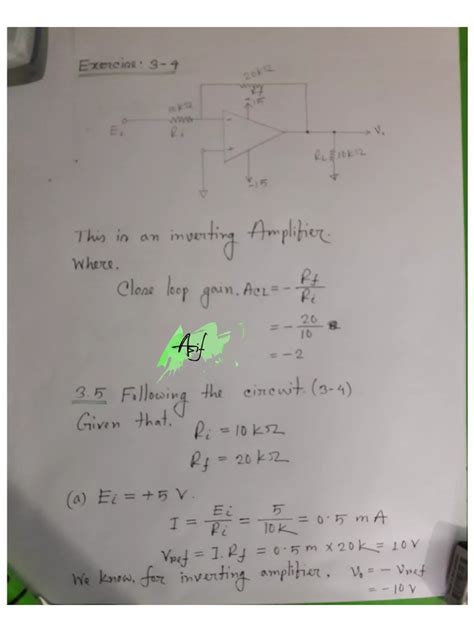 Exercise: 3-4
20kΩ
Rf
10kΩ
-15
Ei
Ri
-
+
Vo
RL 10kΩ
-15
This is an inverting Amplifier.
Where,
Close loop gain, ACL = - Rf/Ri
= - 20/10
= -2
Asif
3.5 Following the circuit. (3-4)
Given that.
Ri = 10 kΩ
Rf = 20 kΩ
(a) Ei = +5 V.
I = Ei/Ri = 5/10k = 0.5 mA
VRef = I.Rf = 0.5 m × 20k = 10V
We know, for inverting amplifier, Vo = - VRef
= -10V